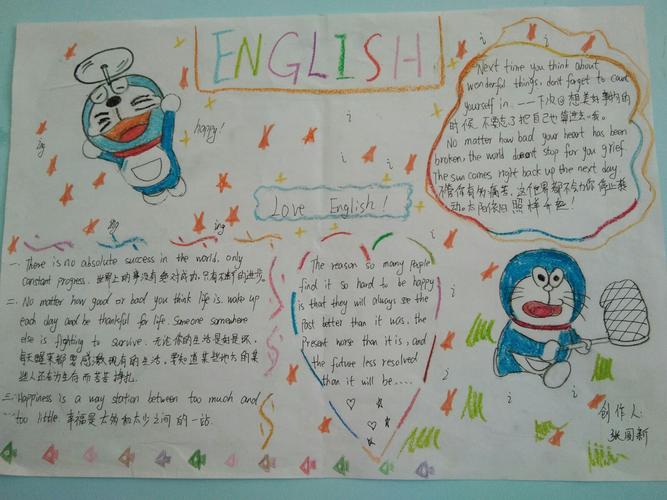 ENGLISH
happy!
ing
ing
ing
Love English!
Next time you think about
wonderful things, don't forget to count
yourself in. — 下次@想美好事物的
时候, 不要忘了把自己也算进去哦。
No matter how bad your heart has been
broken, the world doesn't stop for you grief.
The sun comes right back up the next day
不管你有多痛苦, 这个世界都不会为你停止转
动。太阳依旧照样升起!
一. There is no absolute success in the world, only
constant progress. 世界上的事没有绝对成功, 只有不断的进步。
二. No matter how good or bad you think life is, wake up
each day and be thankful for life. Someone somewhere
else is fighting to survive. 无论你的生活是好是坏,
每天醒来都要感激现有的生活, 要知道某些地方的某
些人还在为生存而苦苦挣扎
三. Happiness is a way station between too much and
too little 幸福是太多和太少之间的一站.
The reason so many people
find it so hard to be happy
is that they will always see the
Past better than it was, the
Present worse than it is, and
the future less resolved
than it will be....
创作人:
张国新